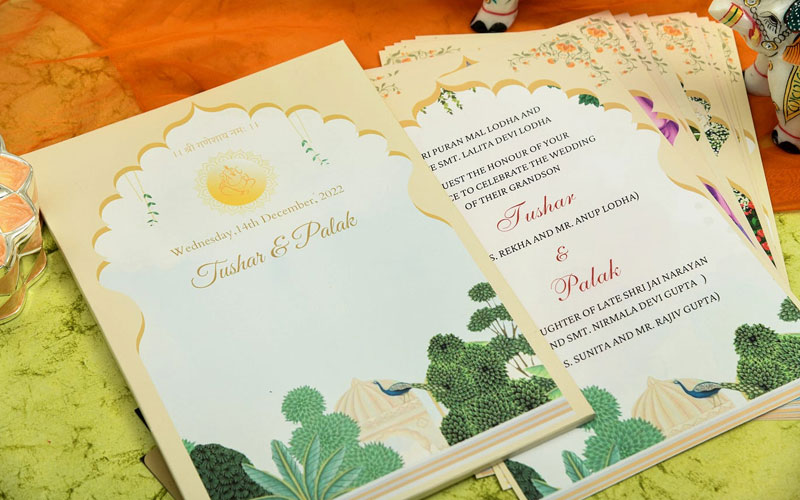 ।। श्री गणेशाय नमः ।।
Wednesday,14th December, 2022
Tushar & Palak
RI PURAN MAL LODHA AND
E SMT. LALITA DEVI LODHA
UEST THE HONOUR OF YOUR
CE TO CELEBRATE THE WEDDING
OF THEIR GRANDSON
Tushar
S. REKHA AND MR. ANUP LODHA)
&
Palak
UGHTER OF LATE SHRI JAI NARAYAN
ND SMT. NIRMALA DEVI GUPTA )
S. SUNITA AND MR. RAJIV GUPTA)